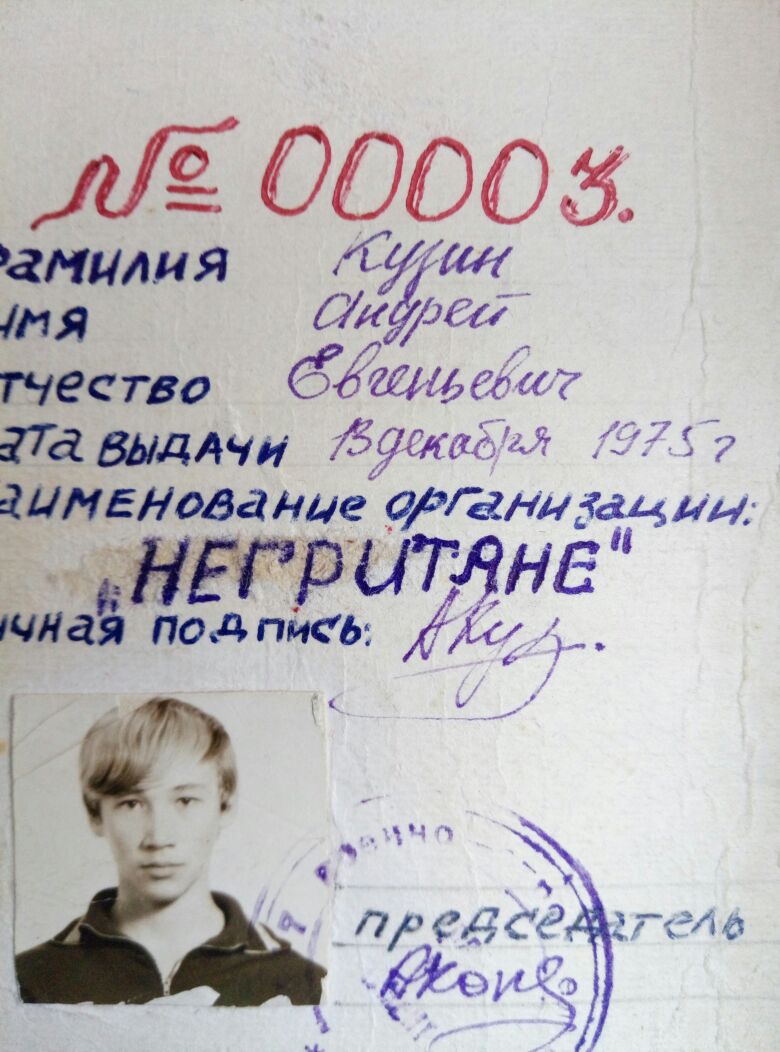 № 00003.
Фамилия Кузин
Имя Андрей
Отчество Евгеньевич
Дата выдачи 13 декабря 1975 г
Наименование организации:
„НЕГРИТЯНЕ"
Личная подпись: АКуз.
председатель